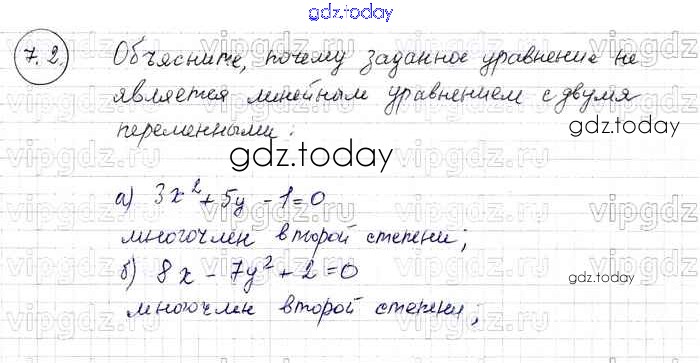 gdz.today
7.2. Объясните, почему заданное уравнение не
является линейным уравнением с двумя
переменными:
gdz.today
а) 3x² + 5y - 1 = 0
многочлен второй степени;
б) 8x - 7y² + 2 = 0
gdz.today
многочлен второй степени;
vipgdz.ru